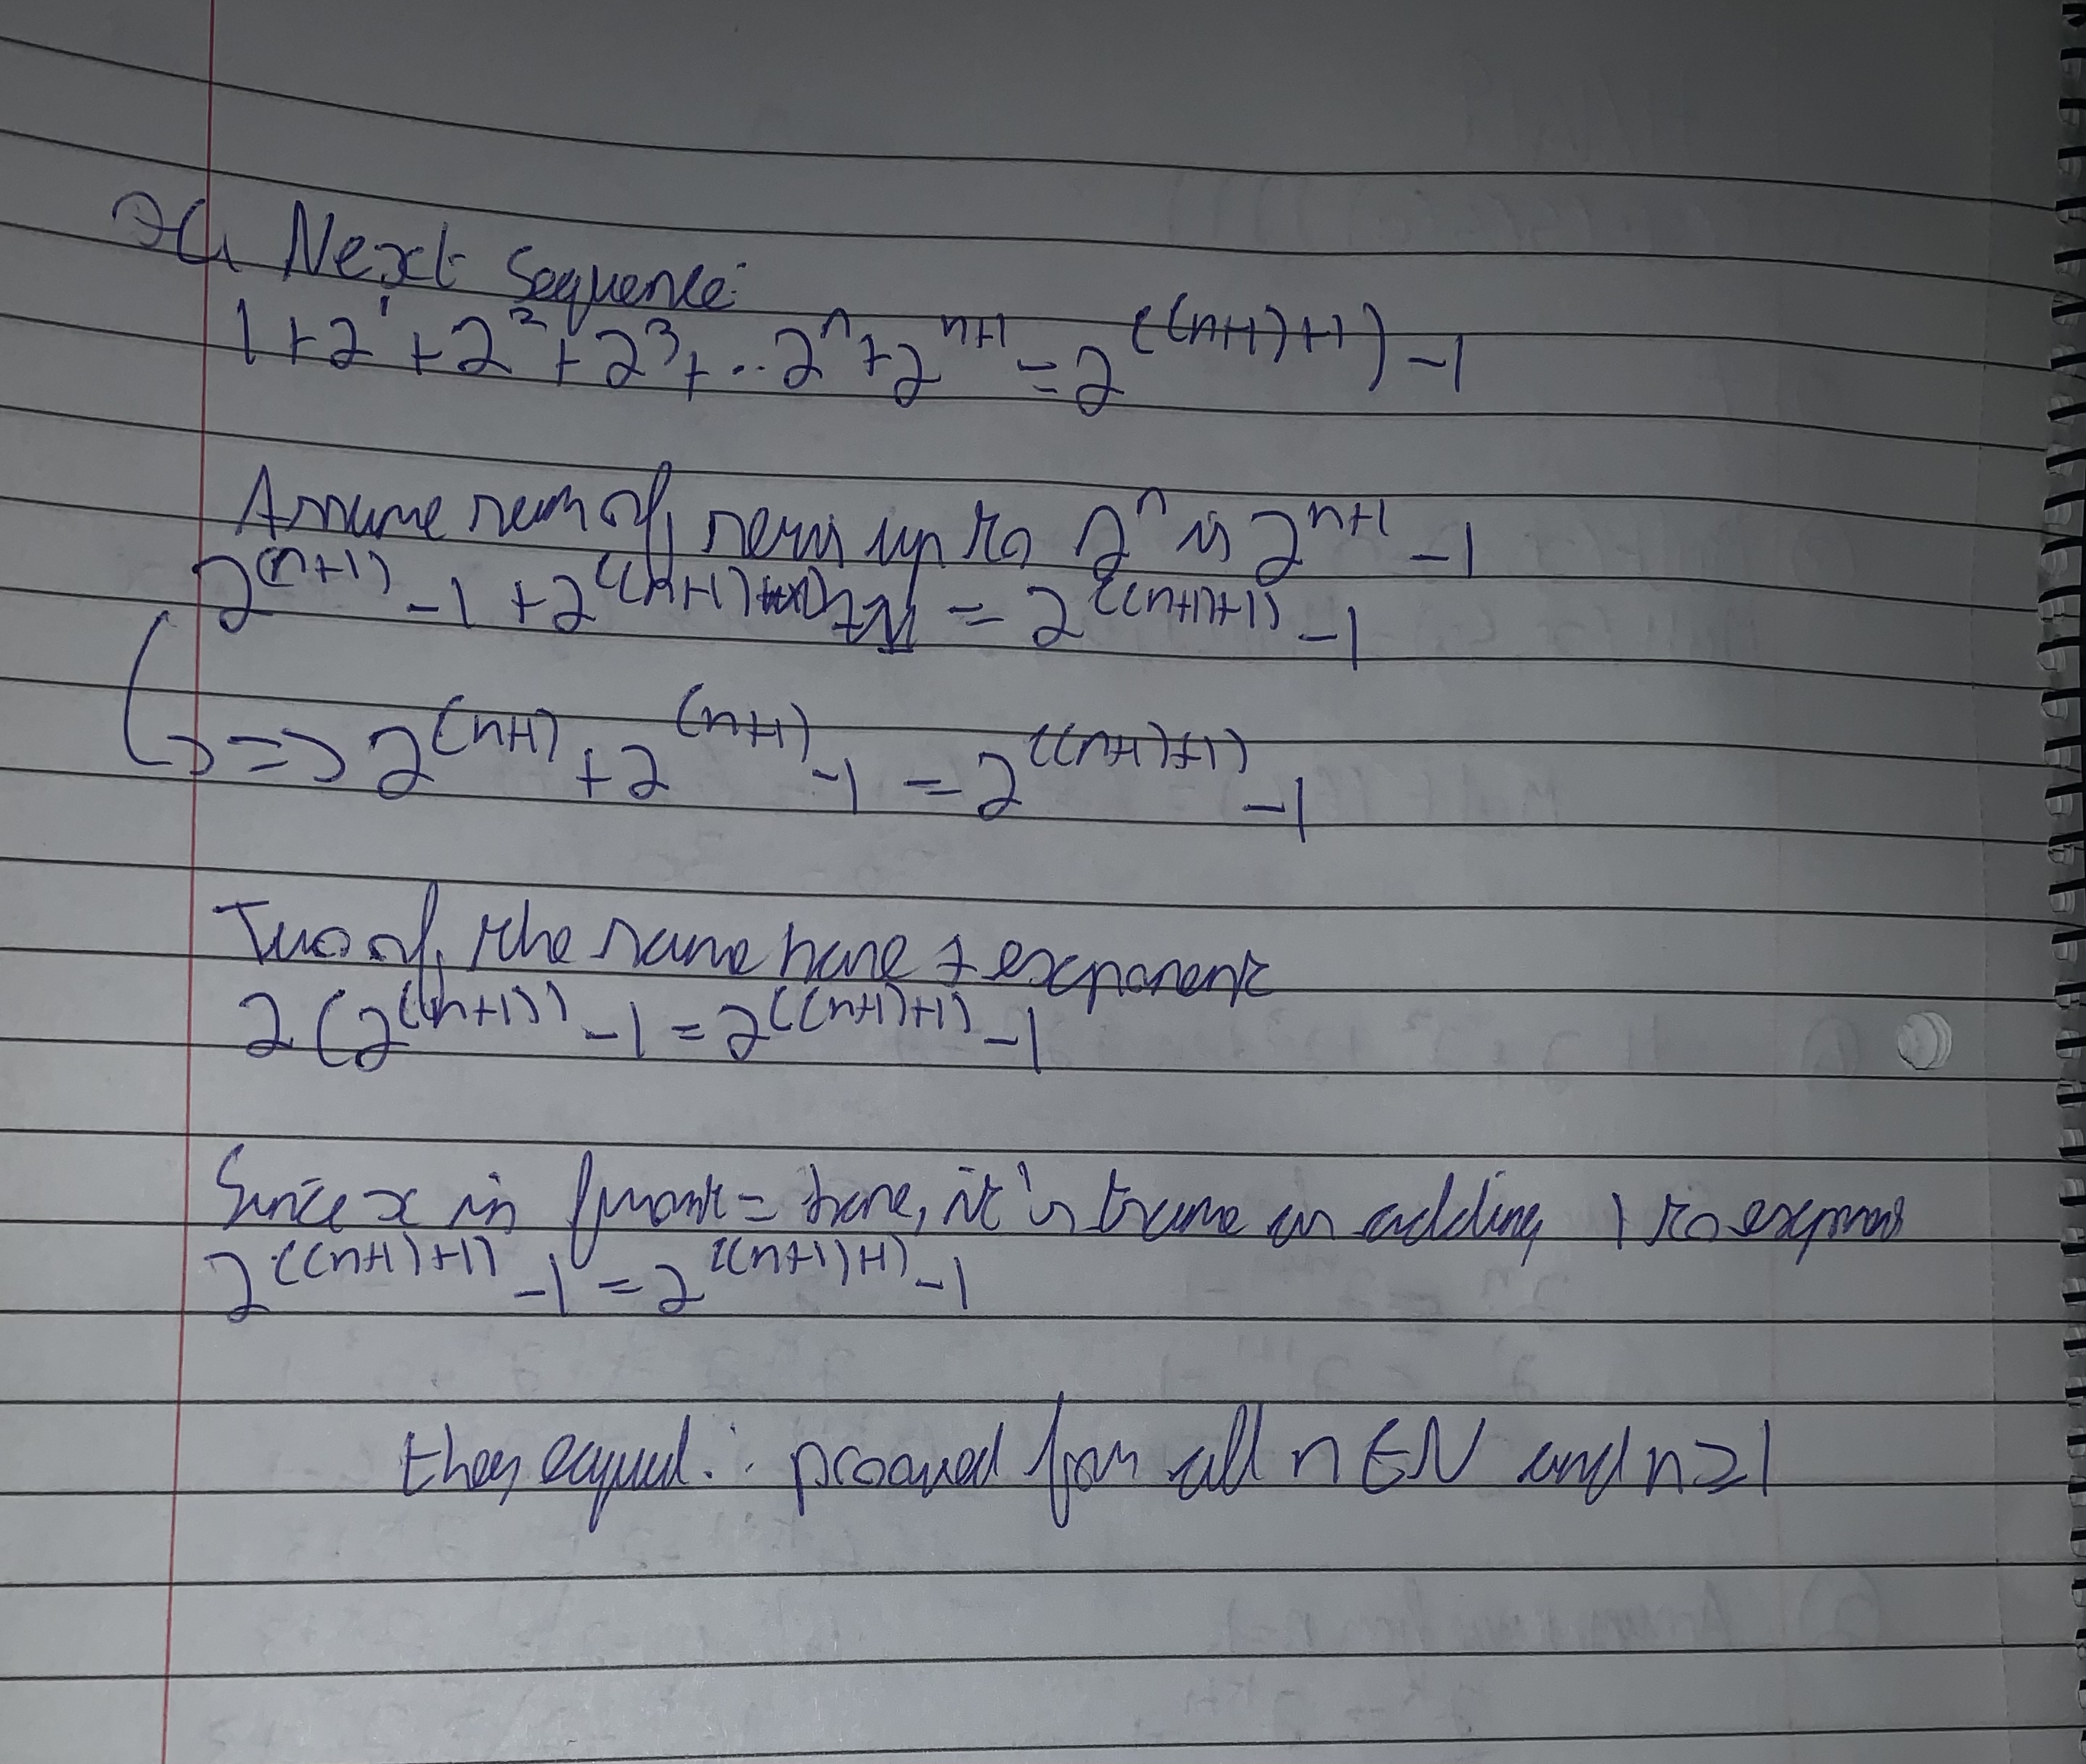 Next Sequence:
1+2¹+2²+2³+..2ⁿ+2ⁿ⁺¹=2^((n+1)+1)-1
Assume sum of series up to 2ⁿ is 2ⁿ⁺¹-1
2^(n+1)-1+2^((n+1) = 2^((n+1)+1)-1
=> 2^(n+1)+2^(n+1)-1=2^((n+1)+1)-1
Two of the same base + exponent
2(2^((n+1))-1=2^((n+1)+1)-1
Since x in front = base, it's same as adding 1 to expon
2^((n+1)+1)-1=2^((n+1)+1)-1
they equal ∴ prooved for all n∈N and n≥1